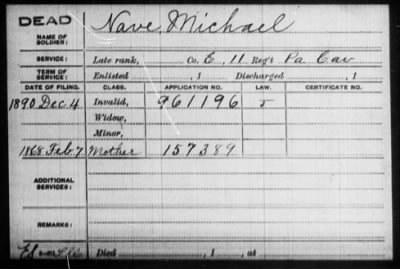 DEAD
Nave, Michael
NAME OF SOLDIER:
SERVICE: Late rank, Co. E, 11 Reg't Pa Cav
TERM OF SERVICE: Enlisted , 1 Discharged , 1
DATE OF FILING. CLASS. APPLICATION NO. LAW. CERTIFICATE NO.
1890 Dec 4 Invalid, 961196
Widow,
Minor,
1868 Feb. 7 Mother 157389
ADDITIONAL SERVICES:
REMARKS:
Died , 1 , at